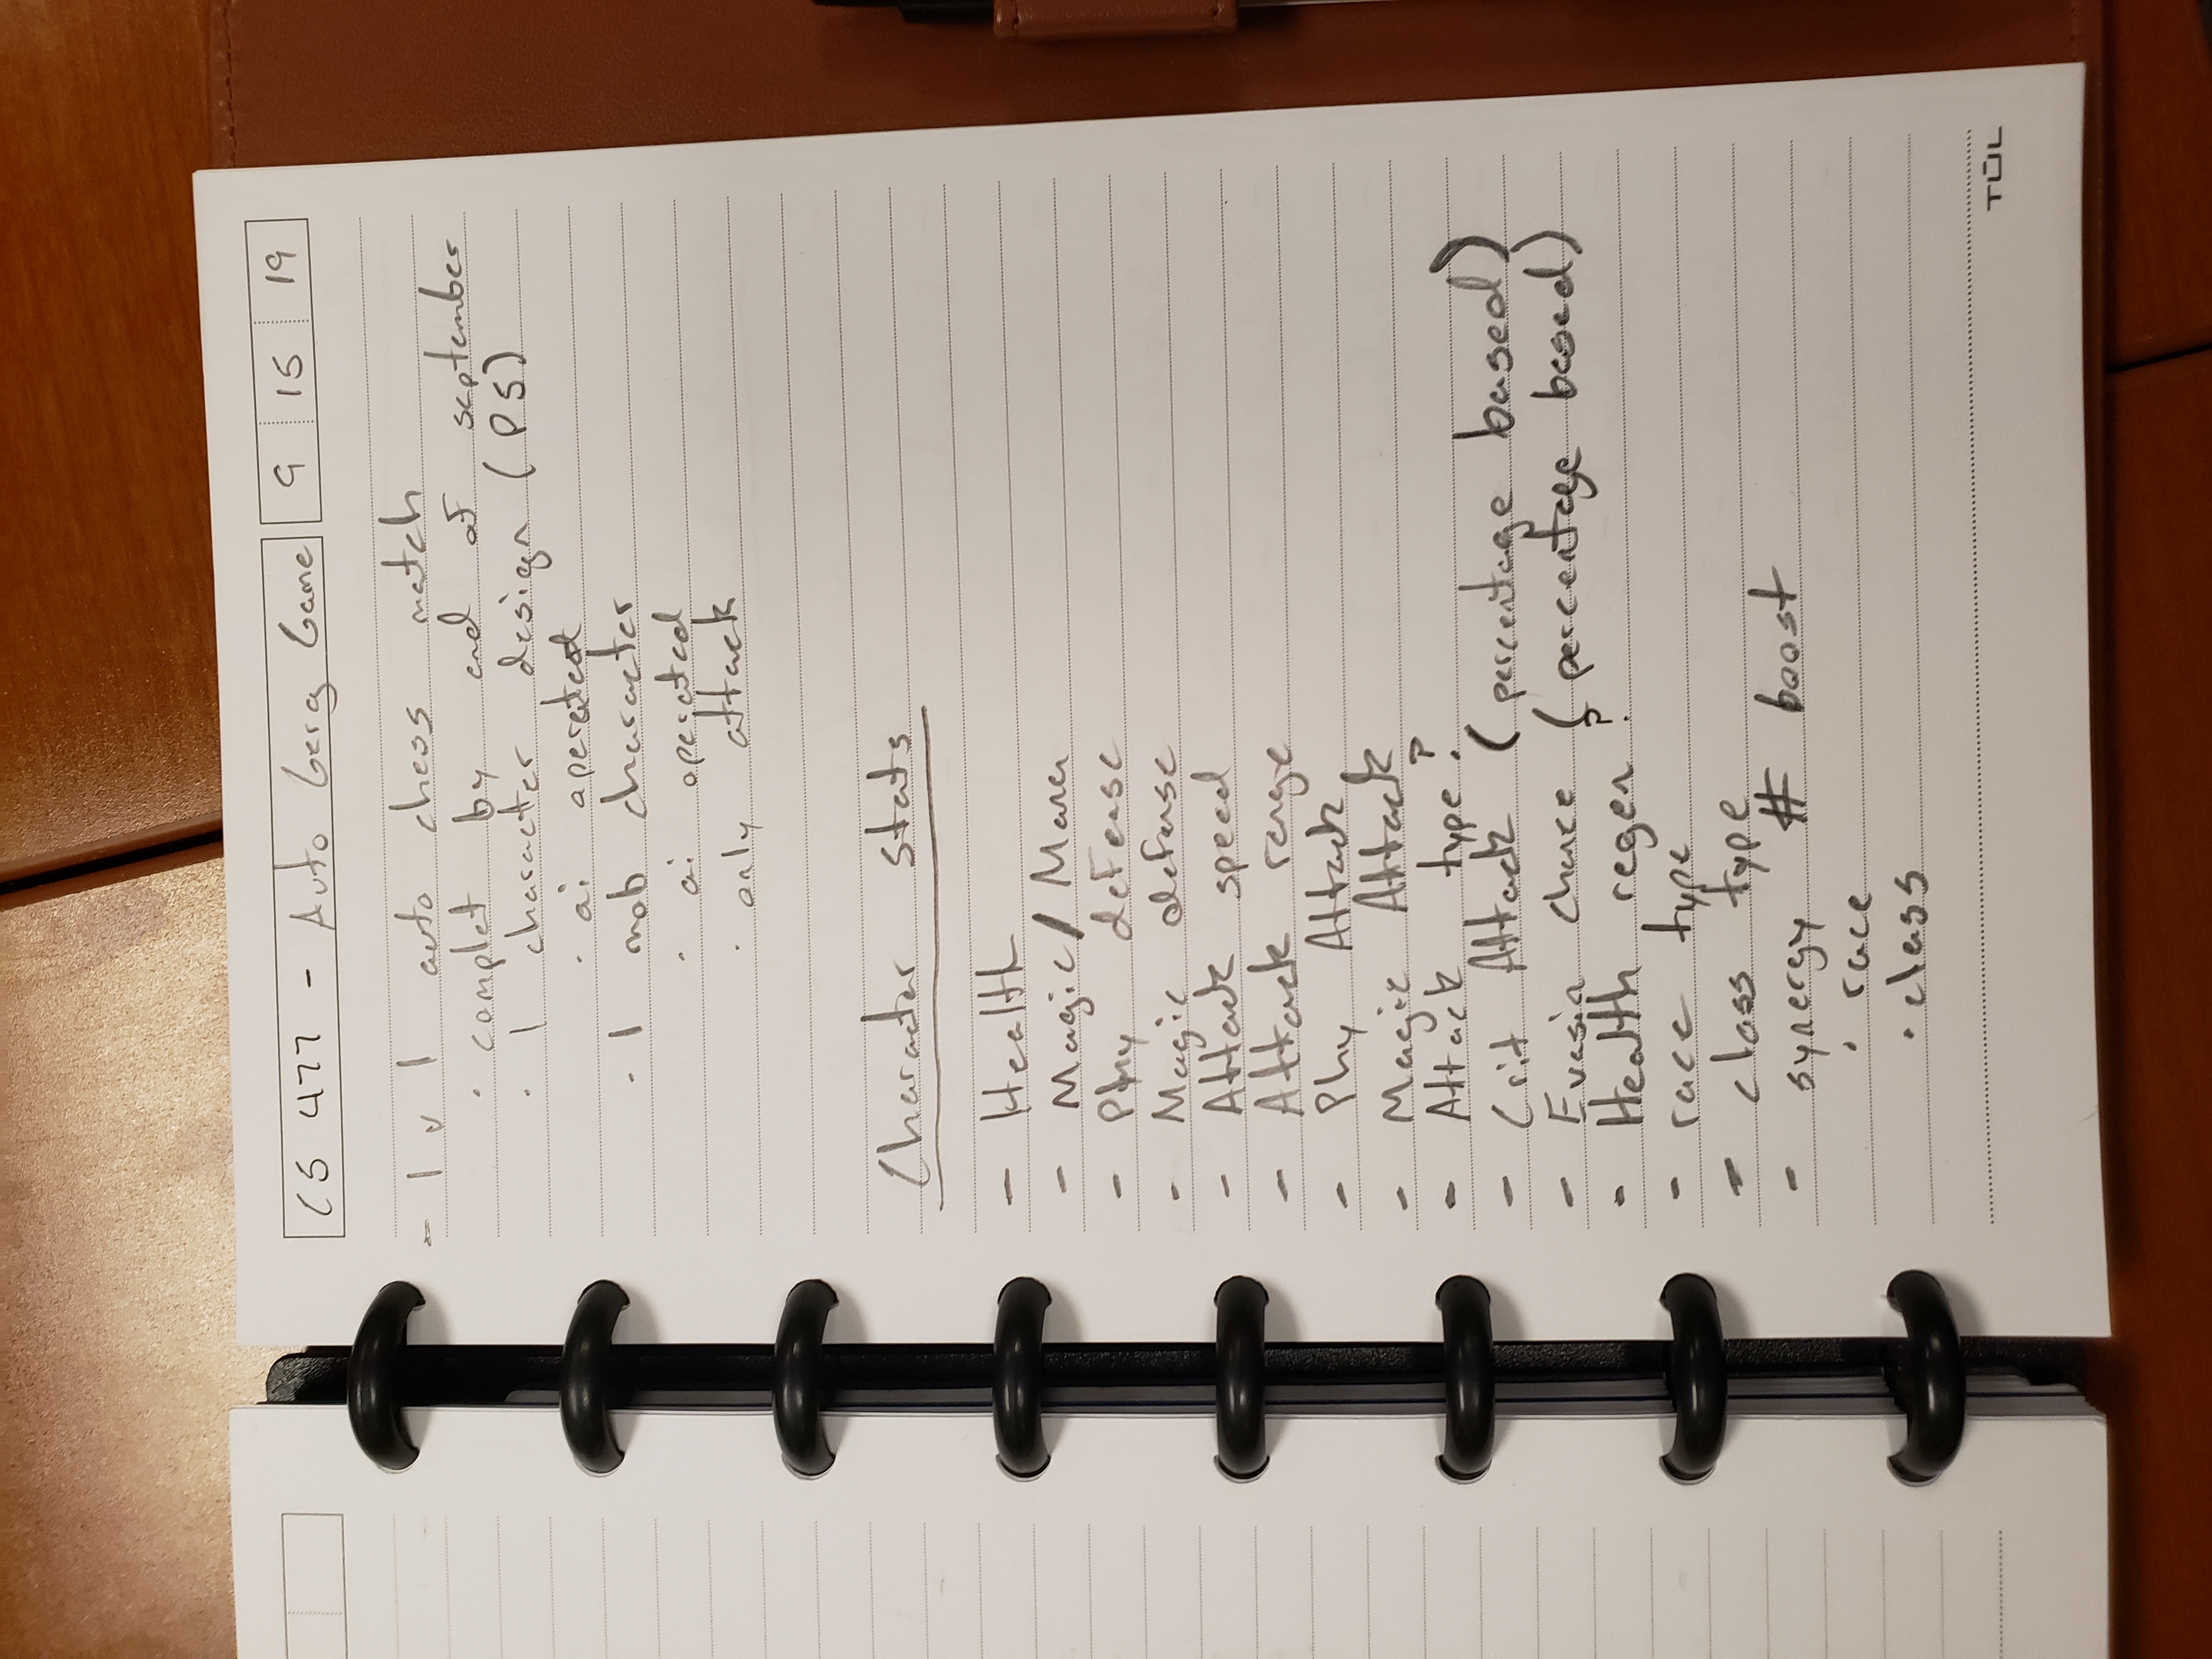 CS 477 - Auto Gerg Game 9 15 19
- 1 v 1 auto chess match
· complet by end of september
· 1 character design (PS)
· ai operated
· 1 mob character
· ai operated
· only attack
Character stats
- Health
- Magic/Mana
- Phy defense
- Magic defense
- Attack speed
- Attack range
- Phy Attack
- Magic Attack
- Attack type?
- Crit Attack (percentage based)
- Evasin chance (percentage based)
- Health regen?
- race type
- class type
- synergy # boost
· race
· class
TUL